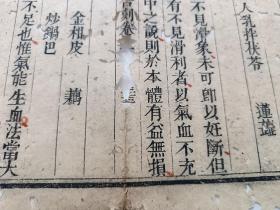 人乳拌茯苓　蓮蕋
不見滑象未可卽以妊斷但
有不見滑利者以氣血不充
中之說則於本體有益無損
金柑皮　藕
炒鍋巴
不足也惟氣能生血法當大